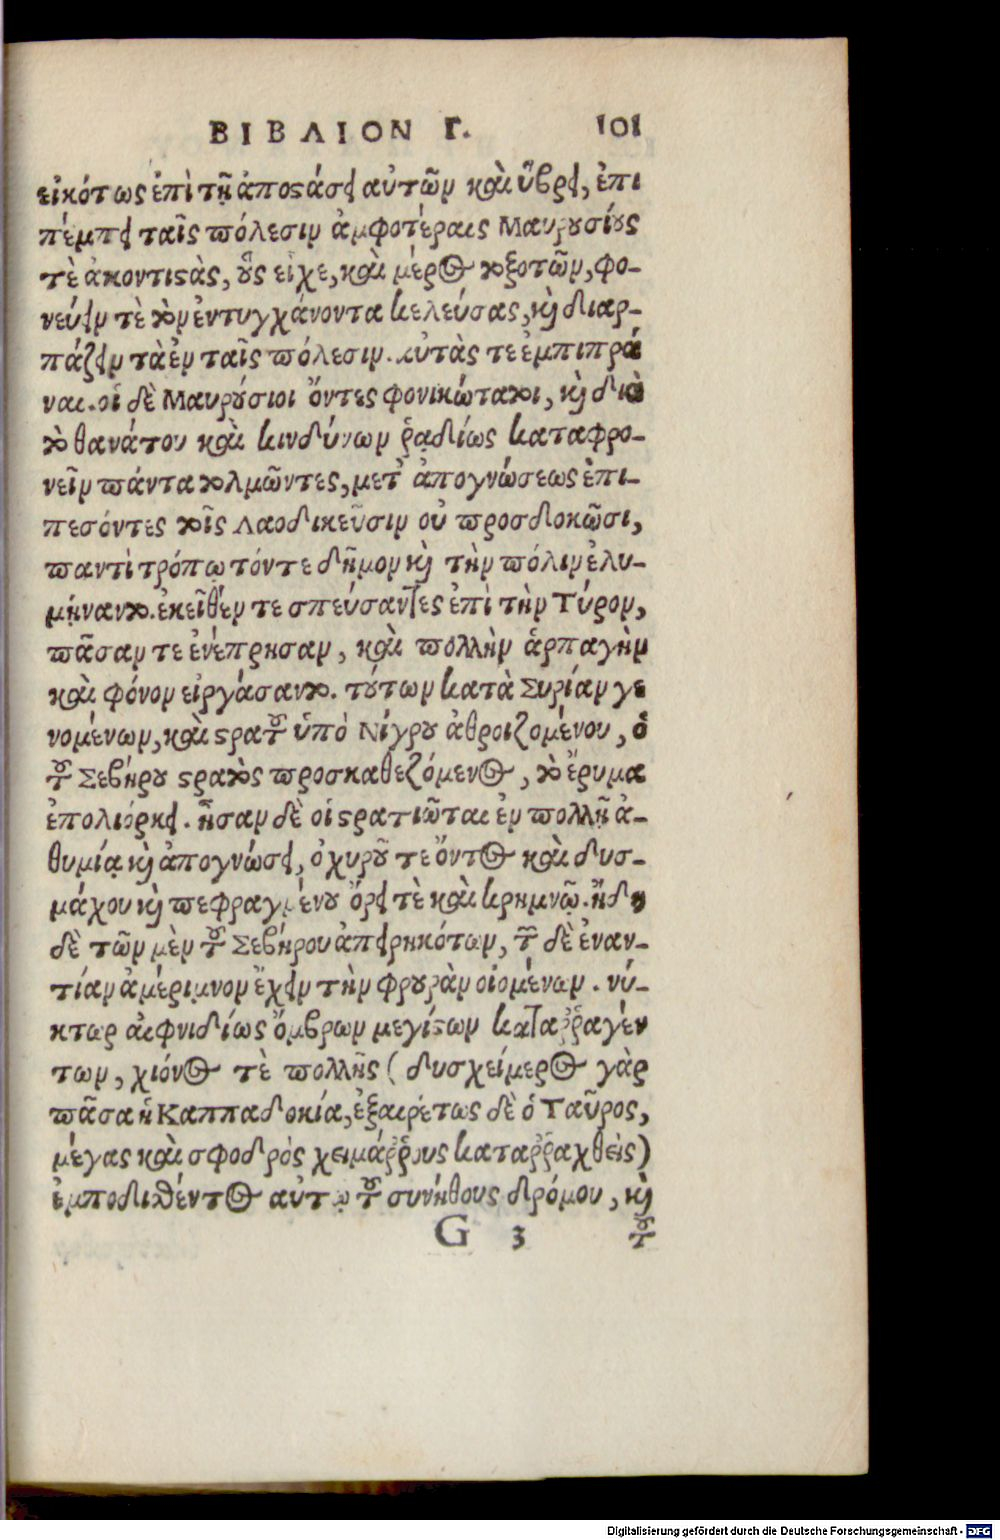 ΒΙΒΛΙΟΝ Γ. 101
εἰκότως ἐπὶ τῇ ἀποστάσει αὐτῶν καὶ ὕβρει, ἐπι
πέμπει ταῖς πόλεσιν ἀμφοτέραις Μαυρουσίους
τὲ ἀκοντιστὰς, οὓς εἶχε, καὶ μέρος τοξοτῶν, φο-
νεύειν τὲ τὸν ἐντυγχάνοντα κελεύσας, καὶ διαρ-
πάζειν τὰ ἐν ταῖς πόλεσιν. αὐτὰς τε ἐμπιπρά
ναι. οἱ δὲ Μαυρούσιοι ὄντες φονικώτατοι, καὶ διὰ
τὸ θανάτου καὶ κινδύνων ῥᾳδίως καταφρο-
νεῖν πάντα τολμῶντες, μετ' ἀπογνώσεως ἐπι-
πεσόντες τοῖς Λαοδικεῦσιν οὐ προσδοκῶσι,
παντὶ τρόπῳ τόν τε δῆμον καὶ τὴν πόλιν ἐλυ-
μήναντο. ἐκεῖθέν τε σπεύσαντες ἐπὶ τὴν Τύρον,
πᾶσαν τε ἐνέπρησαν, καὶ πολλὴν ἁρπαγὴν
καὶ φόνον εἰργάσαντο. τούτων κατὰ Συρίαν γε
νομένων, καὶ στρατοῦ ὑπὸ Νίγρου ἀθροιζομένου, ὁ
τοῦ Σεβήρου στρατὸς προσκαθεζόμενος, τὸ ἔρυμα
ἐπολιόρκει. ἦσαν δὲ οἱ στρατιῶται ἐν πολλῇ ἀ-
θυμίᾳ καὶ ἀπογνώσει, ὀχυροῦ τε ὄντος καὶ δυσ-
μάχου καὶ πεφραγμένου ὄρει τὲ καὶ κρημνῷ. ἤδη
δὲ τῶν μὲν τοῦ Σεβήρου ἀπειρηκότων, τῶν δὲ ἐναν-
τίαν ἀμέριμνον ἔχειν τὴν φρουρὰν οἰομένων. νύ-
κτωρ αἰφνιδίως ὄμβρων μεγίστων καταῤῥαγέν
των, χιόνος τὲ πολλῆς (δυσχείμερος γὰρ
πᾶσα ἡ Καππαδοκία, ἐξαιρέτως δὲ ὁ Ταῦρος,
μέγας καὶ σφοδρὸς χειμάῤῥους καταῤῥαχθεὶς)
ἐμποδισθέντος αὐτῷ τοῦ συνήθους δρόμου, καὶ
G 3 τοῦ
Digitalisierung gefördert durch die Deutsche Forschungsgemeinschaft - DFG